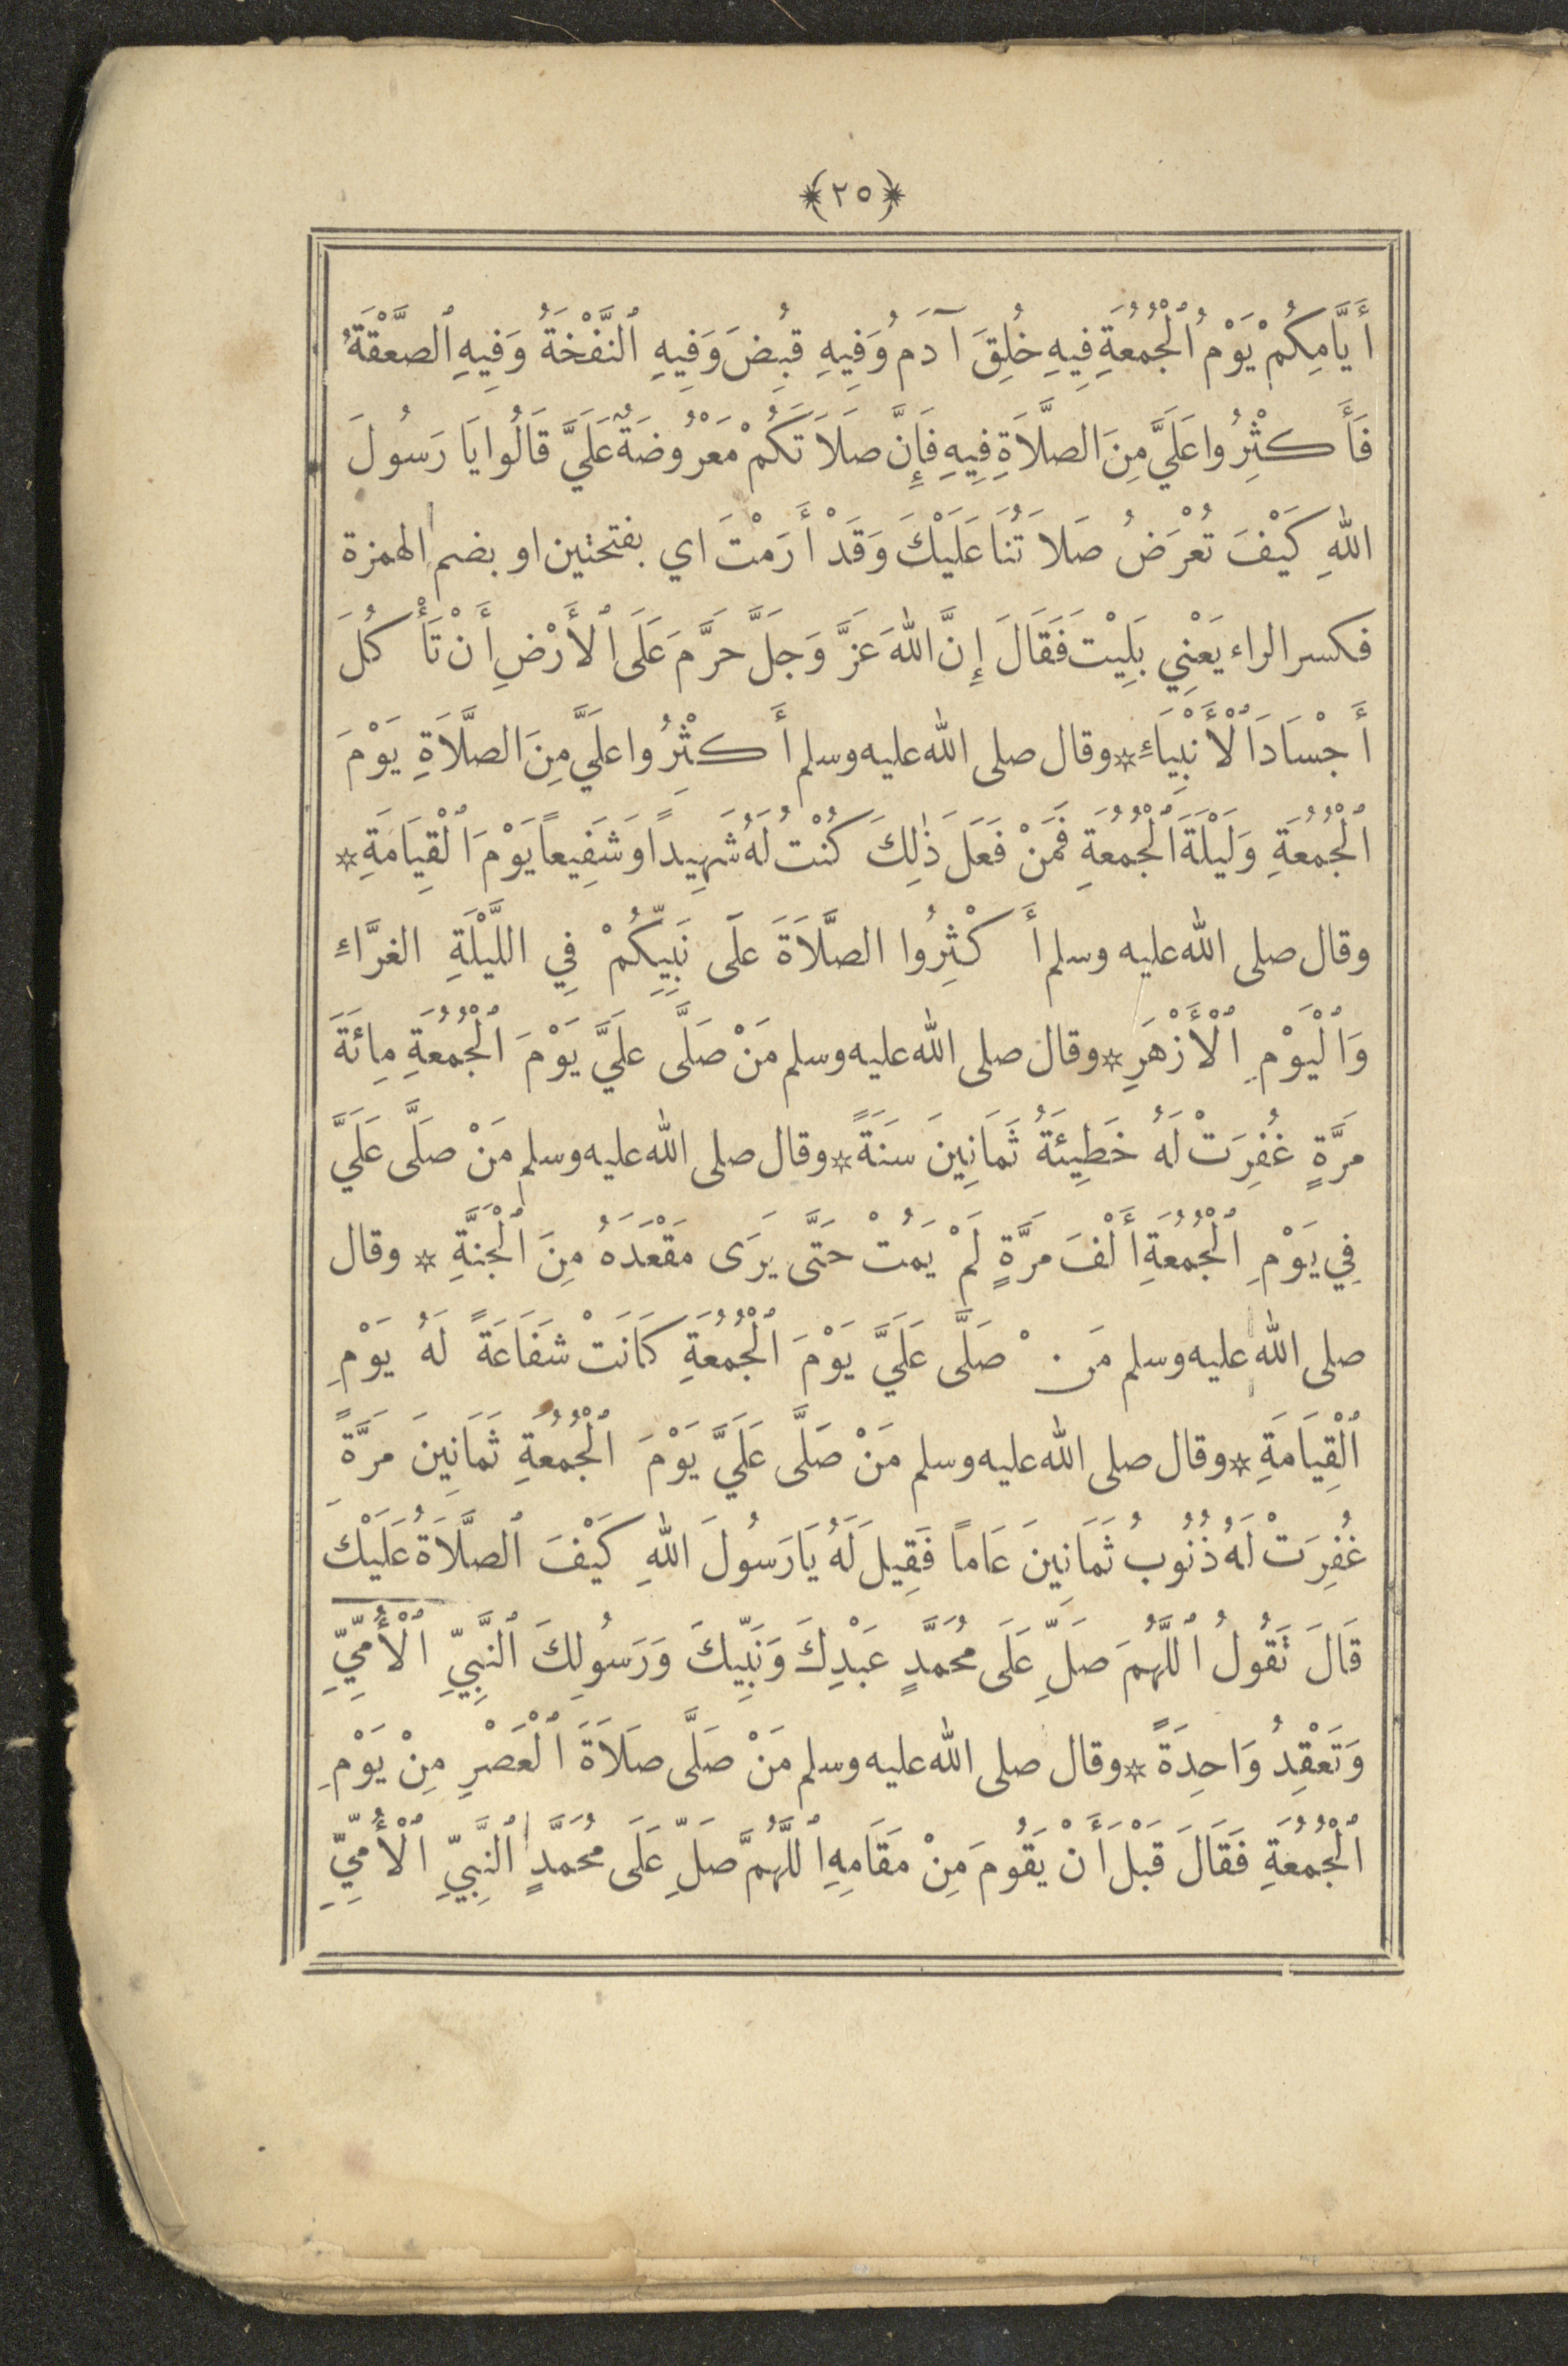 ﴿٢٥﴾
أَيَّامِكُمْ يَوْمُ ٱلْجُمُعَةِ فِيهِ خُلِقَ آدَمُ وَفِيهِ قُبِضَ وَفِيهِ ٱلنَّفْخَةُ وَفِيهِ ٱلصَّعْقَةُ
فَأَكْثِرُوا عَلَيَّ مِنَ الصَّلَاَةِ فِيهِ فَإِنَّ صَلَاَتَكُمْ مَعْرُوضَةٌ عَلَيَّ قَالُوا يَا رَسُولَ
اللهِ كَيْفَ تُعْرَضُ صَلاَتُنَا عَلَيْكَ وَقَدْ أَرَمْتَ اي بفتحتين او بضم الهمزة
فكسر الراء يَعْنِي بَلِيْتَ فَقَالَ إِنَّ اللهَ عَزَّ وَجَلَّ حَرَّمَ عَلَى ٱلأَرْضِ أَنْ تَأْكُلَ
أَجْسَادَ ٱلْأَنْبِيَاءِ * وقال صلى الله عليه وسلم أَكْثِرُوا عَلَيَّ مِنَ الصَّلَاةِ يَوْمَ
ٱلْجُمُعَةِ وَلَيْلَةَ ٱلْجُمُعَةِ فَمَنْ فَعَلَ ذٰلِكَ كُنْتُ لَهُ شَهِيداً وَشَفِيعاً يَوْمَ ٱلْقِيَامَةِ *
وقال صلى الله عليه وسلم أَكْثِرُوا الصَّلَاَةَ عَلَى نَبِيِّكُمْ فِي اللَّيْلَةِ الغرَّاءِ
وَٱلْيَوْمِ ٱلْأَزْهَرِ * وقال صلى الله عليه وسلم مَنْ صَلَّى عَلَيَّ يَوْمَ ٱلْجُمُعَةِ مِائَةَ
مَرَّةٍ غُفِرَتْ لَهُ خَطِيئَةُ ثَمَانِينَ سَنَةً * وقال صلى الله عليه وسلم مَنْ صَلَّى عَلَيَّ
فِي يَوْمِ ٱلْجُمُعَةِ أَلْفَ مَرَّةٍ لَمْ يَمُتْ حَتَّى يَرَى مَقْعَدَهُ مِنَ ٱلْجَنَّةِ * وقال
صلى الله عليه وسلم مَنْ صَلَّى عَلَيَّ يَوْمَ ٱلْجُمُعَةِ كَانَتْ شَفَاعَةً لَهُ يَوْمِ
ٱلْقِيَامَةِ * وقال صلى الله عليه وسلم مَنْ صَلَّى عَلَيَّ يَوْمَ ٱلْجُمُعَةِ ثَمَانِينَ مَرَّةً
غُفِرَتْ لَهُ ذُنُوبُ ثَمَانِينَ عَاماً فَقِيلَ لَهُ يَا رَسُولَ اللهِ كَيْفَ ٱلصَّلَاَةُ عَلَيْكَ
قَالَ تَقُولُ ٱللَّهُمَ صَلِّ عَلَى مُحَمَّدٍ عَبْدِكَ وَنَبِيِّكَ وَرَسُولِكَ ٱلنَّبِيِّ ٱلْأُمِّيِّ
وَتَعْقِدُ وَاحِدَةً * وقال صلى الله عليه وسلم مَنْ صَلَّى صَلَاَةَ ٱلْعَصْرِ مِنْ يَوْمِ
ٱلْجُمُعَةِ فَقَالَ قَبْلَ أَنْ يَقُومَ مِنْ مَقَامِهِ ٱللَّهُمَّ صَلِّ عَلَى مُحَمَّدٍ ٱلنَّبِيِّ ٱلْأُمِّيِّ